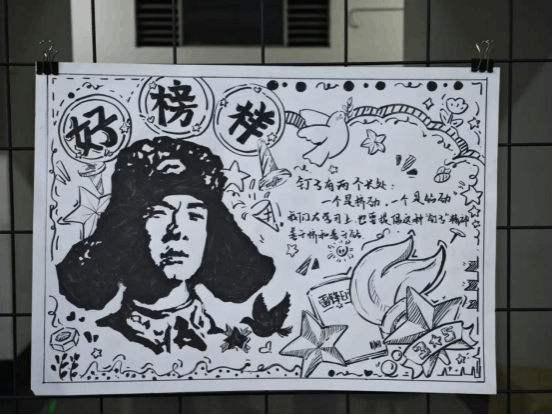 好榜样
钉子有两个长处：
一个是挤劲，一个是钻劲
我们在学习上也要提倡这种"钉子"精神
善于挤和善于钻
雷锋日记
3·5